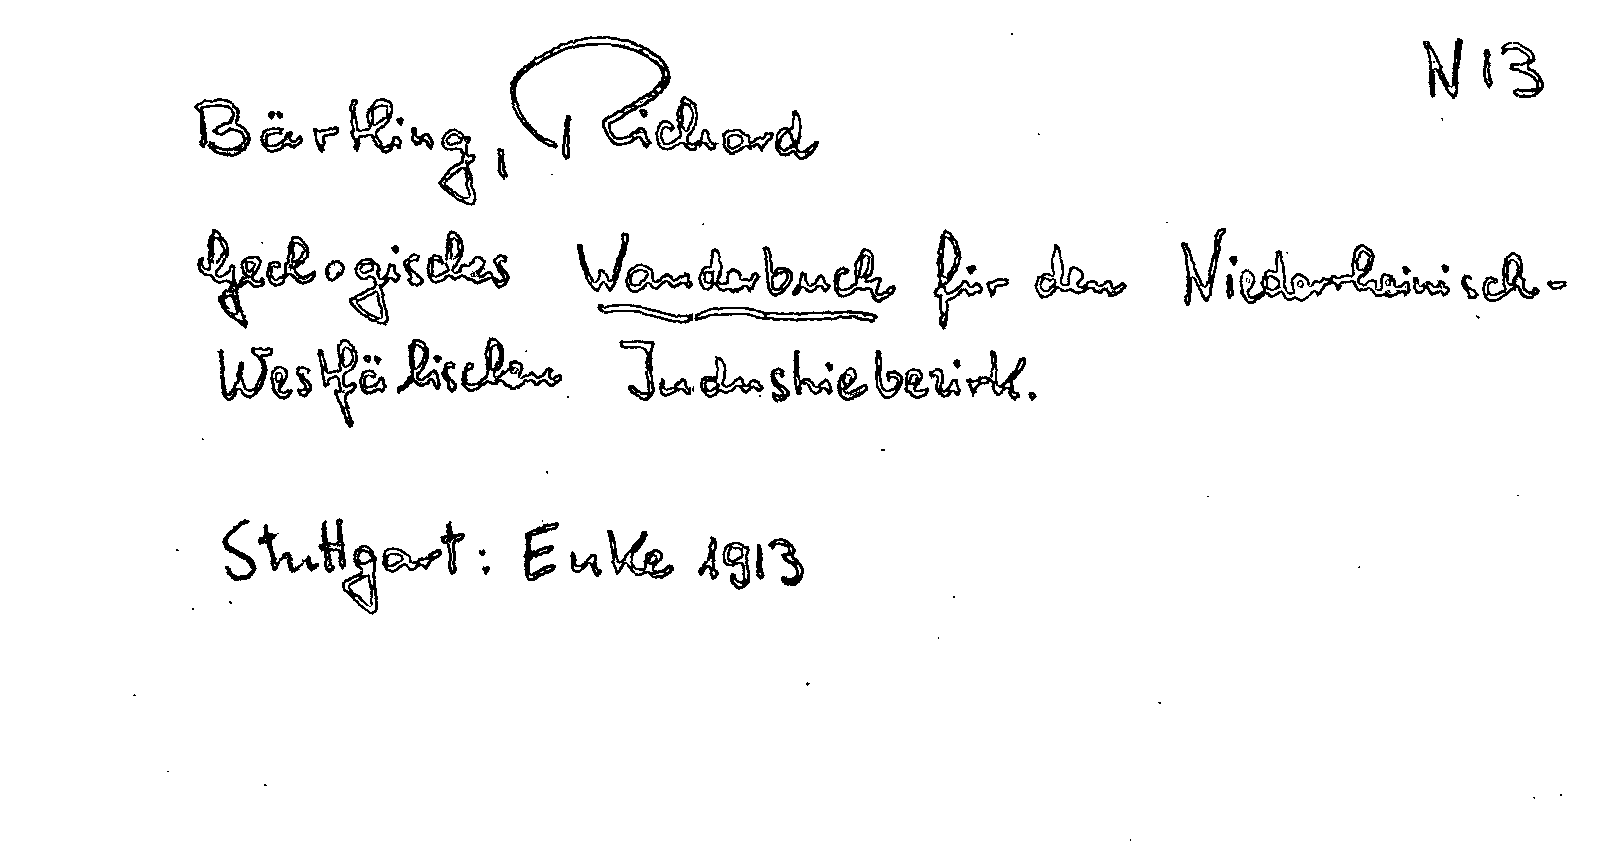 N 13
Bärtling, Richard
Geologisches Wanderbuch für den Niederrheinisch-
Westfälischen Industriebezirk.
Stuttgart: Enke 1913